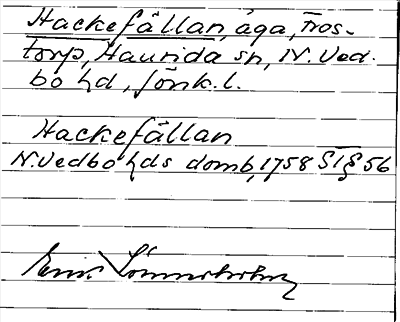 Hackefällan, äga, Tros-
torp, Haurida sn, N. Ved-
bo hd, Jönk. l.
Hackefällan
N. Vedbo hds domb, 1758 ST § 56